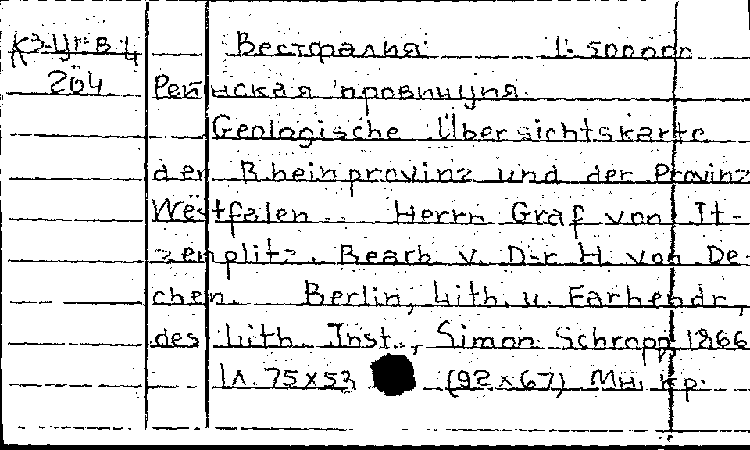 К3-Цг-В-4 Вестфалия. 1:500000
204 Рейнская провинция.
Geologische Übersichtskarte
der Rheinprovinz und der Provinz
Westfalen.. Herrn Graf von It-
zenplitz. Bearb. v. D-r H. von De-
chen. Berlin, Lith. u. Farbendr,
des Lith. Inst., Simon Schropp, 1866
1л. 75x53 (92x67) Мн. кр.